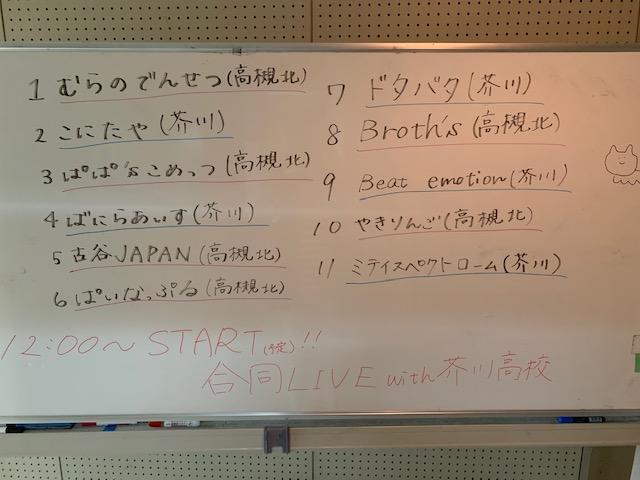 1 むらのでんせつ(高槻北)
2 こにたや(芥川)
3 ぱぱ'sこめっつ(高槻北)
4 ばにらあいす(芥川)
5 古谷JAPAN(高槻北)
6 ぱいなっぷる(高槻北)
7 ドタバタ(芥川)
8 Broth's(高槻北)
9 Beat emotion(芥川)
10 やきりんご(高槻北)
11 ミテイスペクトローム(芥川)
12:00〜START(予定)!!
合同LIVE with芥川高校